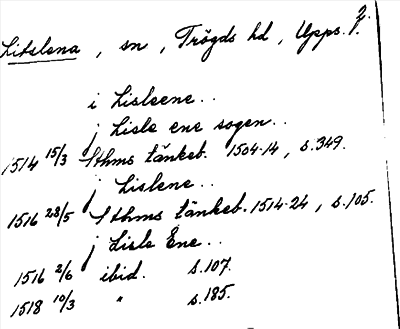 2.
Litslena, sn, Trögds hd, Upps. l.
i Lisleene..
j Lisle ene sogen..
1514 15/3 Sthms tänkeb. 1504-14, s.349.
j Lislene..
1516 28/5 Sthms tänkeb. 1514-24, s.105.
j Lisle Ene..
1516 2/6 ibid. s.107.
1518 10/3 " s.185.